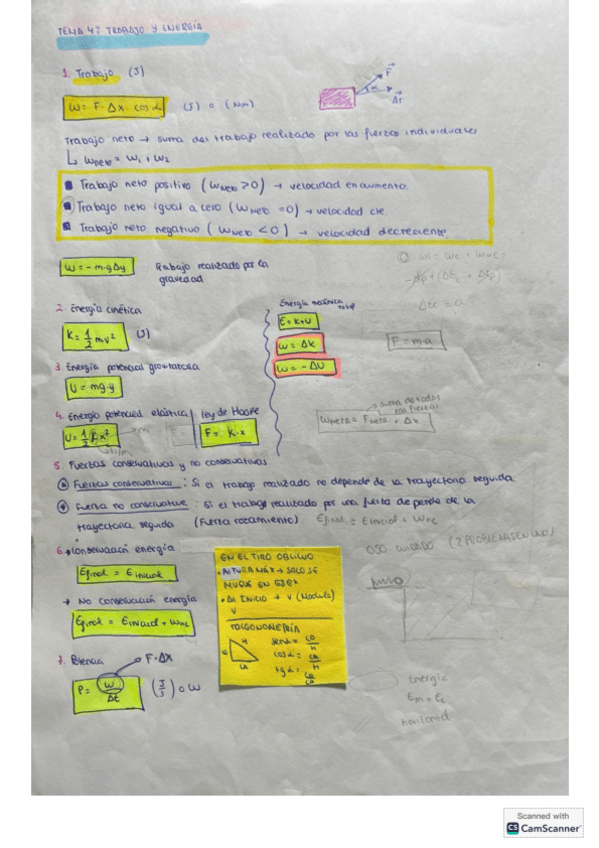 TEMA 4: TRABAJO Y ENERGÍA
1. Trabajo (J)
W = F · Δx · cos α (J) o (Nm)
F
α
Δr
Trabajo neto → suma del trabajo realizado por las fuerzas individuales
↳ Wneto = W1 + W2
Trabajo neto positivo (Wneto > 0) → velocidad en aumento.
Trabajo neto igual a cero (Wneto = 0) → velocidad cte.
Trabajo neto negativo (Wneto < 0) → velocidad decreciente.
W = - m·g Δy Trabajo realizado por la gravedad
2. Energía cinética
K = 1/2 mv² (J)
Energía mecánica total
E = K + U
W = ΔK
W = - ΔU
F = m·a
3. Energía potencial gravitatoria
U = mg·y
4. Energía potencial elástica
U = 1/2 k x²
m
N/m
Ley de Hooke
F = K·x
suma de todas
Wneto = Fneto · Δx
5. Fuerzas conservativas y no conservativas
Fuerzas conservativas: Si el trabajo realizado no depende de la trayectoria seguida.
Fuerza no conservative: Si el trabajo realizado por una fuerza depende de la
trayectoria seguida (Fuerza rozamiento) Efinal = Einicial + Wnc
6. → Conservación energía
Efinal = Einicial
→ No conservación energía
Efinal = Einicial + Wnc
EN EL TIRO OBLICUO
• ALTURA MÁX → SOLO SE
MUEVE EN EJE X
• AL INICIO → V (Modulo)
V
TRIGONOMETRÍA
H
senα = CO/H
cosα = CA/H
tgα = CO/CA
CA
OSO (2 PROBLEMAS EN UNO)
MUO
7. Potencia
F·ΔX
P = W/Δt (J/s) o W
energía
Em = Ec
horizontal
Scanned with
CS CamScanner